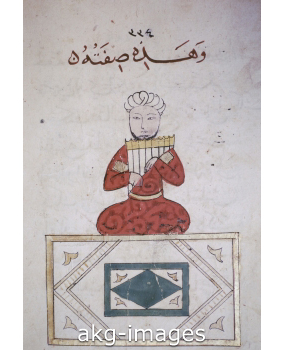 ٢٢٤
وَهَذِهِ صِفَتُهُ ٥
akg-images